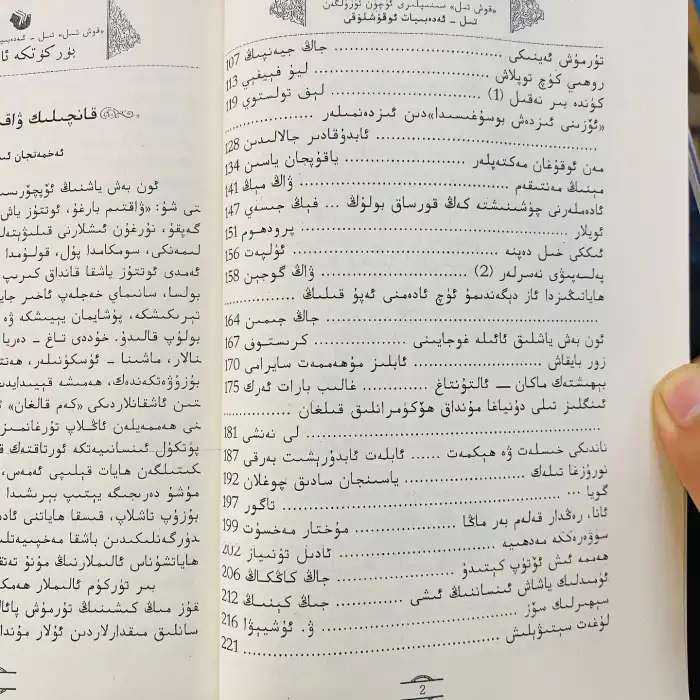 «قوش تىل» سىنىپلىرى ئۈچۈن تۈزۈلگەن
تىل – ئەدەبىيات ئوقۇشلۇقى
تۇرمۇش ئەينىكى ........ جاڭ جيەنپىڭ 107
روھىي كۈچ توپلاش ........ ليۇ فېيفېي 113
كۈندە بىر نەقىل (1) ........ لېف تولستوي 119
«ئۆزىنى ئىزدەش بوسۇغىسىدا»دىن ئىزدەنمىلەر ........
........ ئابدۇقادىر جالالىدىن 128
مەن ئوقۇغان مەكتەپلەر ........ ياقۇپجان ياسىن 134
مېنىڭ مەنتىقەم ........ ۋاڭ مېڭ 141
ئادەملەرنى چۈشىنىشتە كەڭ قورساق بولۇڭ ... فېڭ جىسەي 147
ئويلار ........ پرودھوم 151
ئىككى خىل دەپنە ........ ئۇلپەت 156
پەلسەپىۋى نەسىرلەر (2) ........ ۋاڭ گوجېن 158
ھاياتىڭىزدا ئاز دېگەندىمۇ ئۈچ ئادەمنى ئەپۇ قىلىڭ ........
........ جاڭ جىمىن 164
ئون بەش ياشلىق ئائىلە غوجايىنى ........ كرىستوف 167
زور بايقاش ........ ئابلىز مۇھەممەت سايرامى 170
بېھىشتەك ماكان — ئالتۇنتاغ ........ غالىب بارات ئەرك 175
ئىنگلىز تىلى دۇنياغا مۇنداق ھۆكۈمرانلىق قىلغان ........
........ لى نەنشى 181
ناندىكى خىسلەت ۋە ھېكمەت ...... ئابلەت ئابدۇرېشىت بەرقى 187
نورۇزغا تىلەك ........ ياسىنجان سادىق چوغلان 192
گويا ........ تاگور 197
ئانا، رەڭدار قەلەم بەر ماڭا ........ مۇختار مەخسۇت 199
سۆۋەرەككە مەدھىيە ........ ئادىل تۇنىياز 202
ھەممە ئىش ئۆتۈپ كېتىدۇ ........ جاڭ كاڭكاڭ 206
ئۈمىدلىك ياشاش ئىنساننىڭ ئىشى ........ جىڭ كېنىڭ 212
سېھىرلىك سۆز ........ ۋ. ئوشېيېۋا 216
لۇغەت سېتىۋېلىش ........ 221
2
«قوش تىل» تىل – ئەدەبىيات
بۈركۈتكە
قانچىلىك
ئەخمەتجان
ئون بەش ياشنىڭ
تى شۇ: «ۋاقتىم بارغۇ، ئوتتۇز ياش
گەپقۇ، نۇرغۇن ئىشلارنى
لىمەنكى، سومكامدا پۇل، قولۇمدا
ئەمدى ئوتتۇز ياشقا قانداق كىرىپ
بولسا، سانىماي خەجلەپ ئاخىر
تېرىكىشكە، پۇشايمان يېيىشكە ۋە
بولۇپ قالىدۇ. خۇددى تاغ – دەريا
نالار، ماشىنا – ئۈسكۈنىلەر،
بۇزۇۋەتكەندەك، ھەمىشە
تىن ئاشقانلاردىكى «كەم قالغان»
نى ھەممەيلەن ئاڭلاپ
پۈتكۈل ئىنسانىيەتكە ئورتاقتەك
كىتىلگەن ھايات قېلىپى ئەمەس،
مۇشۇ دەرىجىگە يېتىپ بېرىشىدا
بۇزۇپ تاشلاپ، قىسقا ھاياتنى
دۈرگەنلىكىدىن باشقا
ھاياتشۇناس ئالىملارنىڭ مۇنۇ
بىر تۈركۈم ئالىملار
قۇز مىڭ كىشىنىڭ تۇرمۇش
سانلىق مىقدارلاردىن ئۇلار